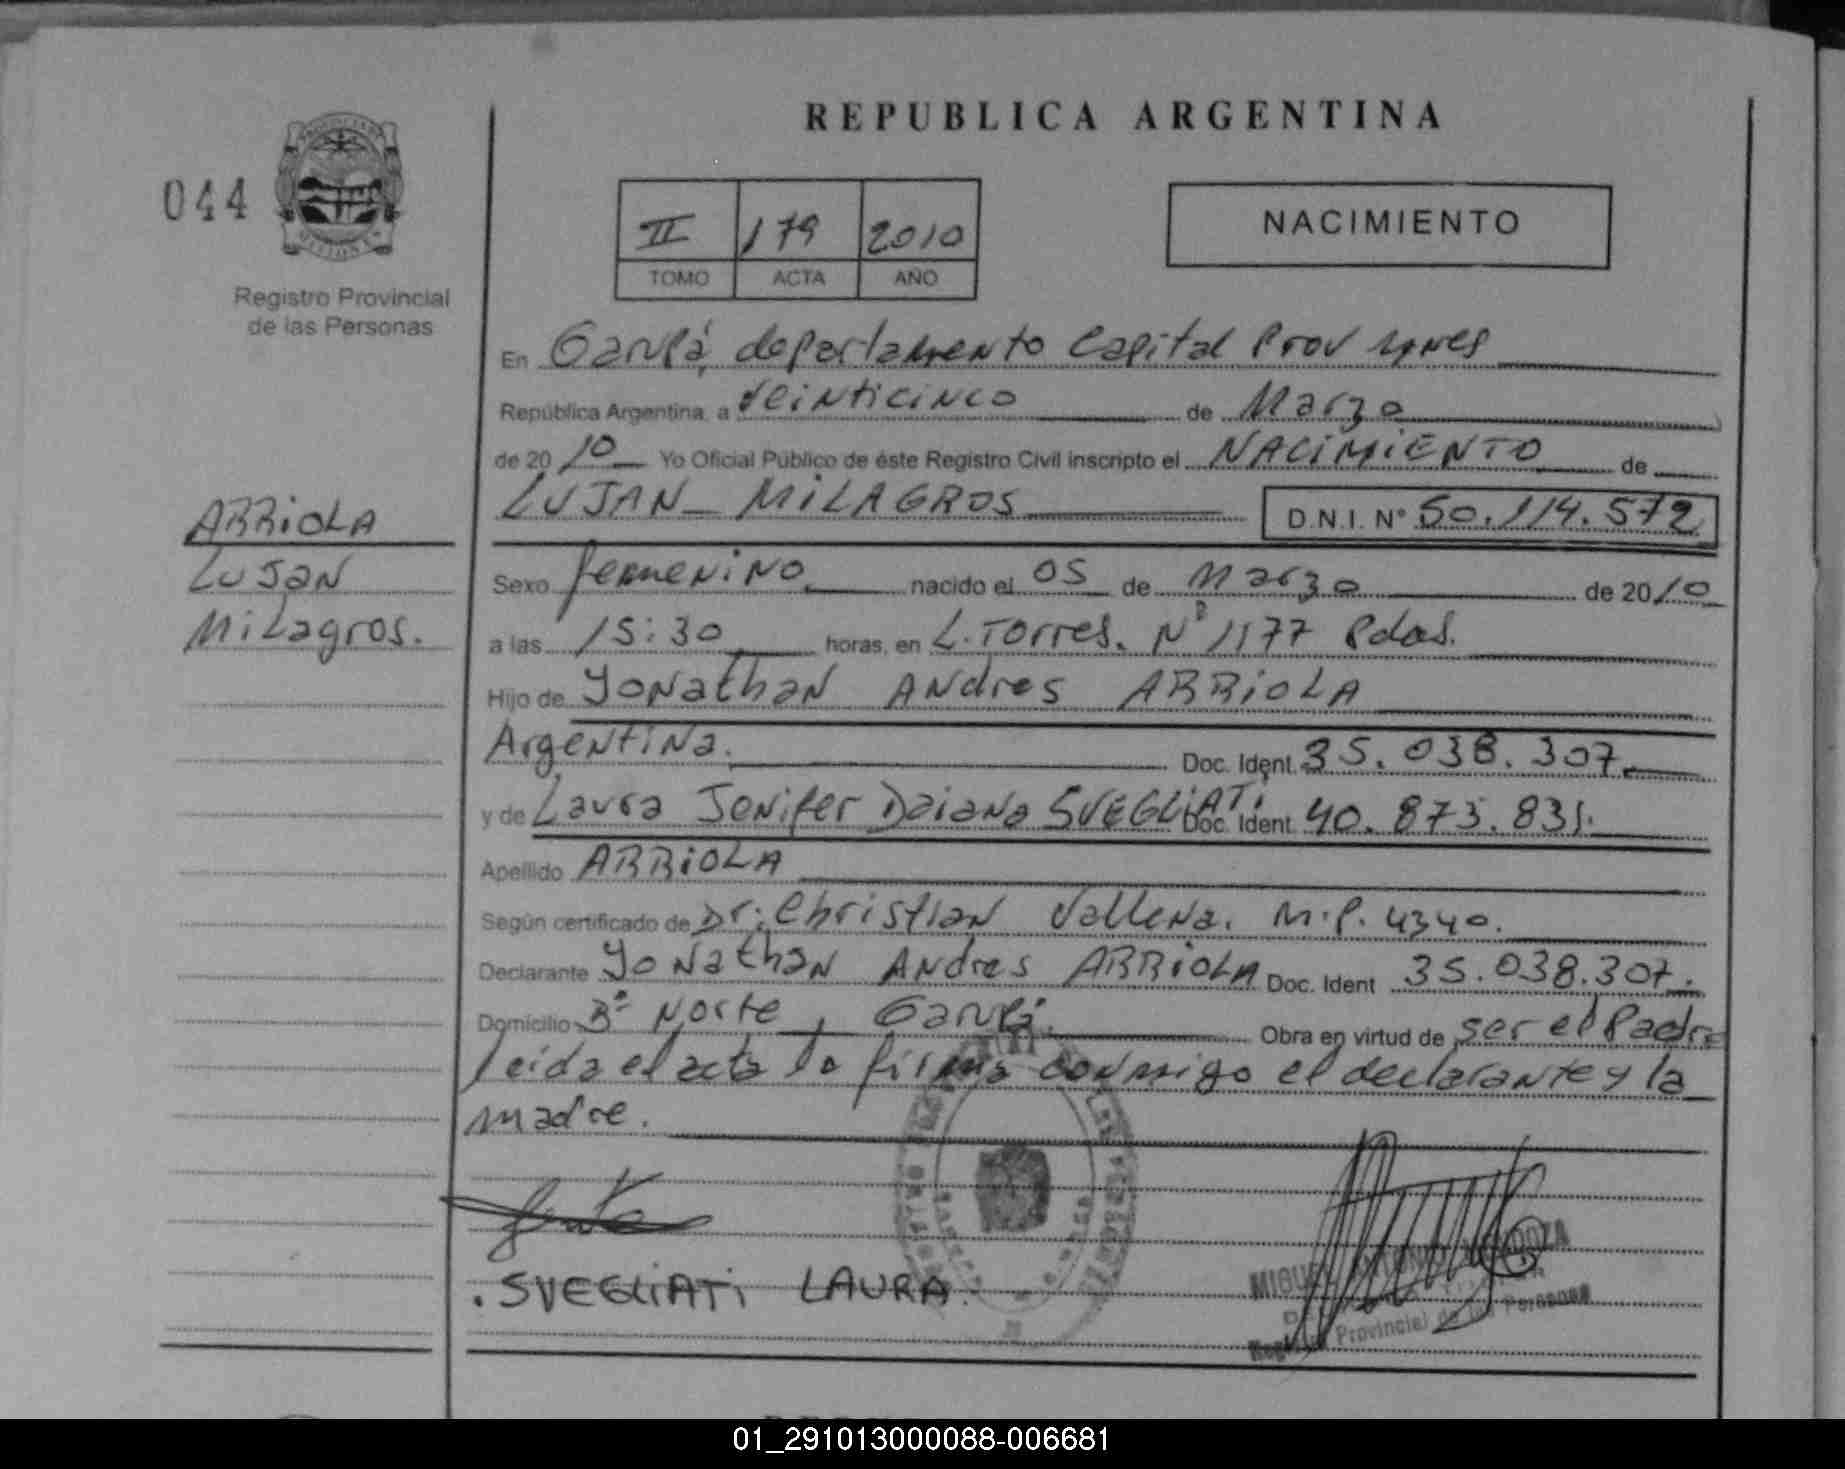 REPUBLICA ARGENTINA
044
NACIMIENTO
II 179 2010
TOMO ACTA AÑO
Registro Provincial
de las Personas
En Garupá, departamento Capital Prov
República Argentina, a veinticinco de Marzo
de 2010 Yo Oficial Público de éste Registro Civil inscripto el NACIMIENTO de
LUJAN MILAGROS D.N.I. N° 50.114.572
ARRIOLA
LUJAN
Milagros.
Sexo femenino nacido el 05 de Marzo de 2010
a las 15:30 horas, en L. Torres. N° 1177 Pdas.
Hijo de Yonathan Andres ARRIOLA
Argentina. Doc. Ident. 35.038.307.
y de Laura Jenifer Daiana SVEGLIATI Doc. Ident. 40.873.831.
Apellido ARRIOLA
Según certificado de Dr: Christian Vallena. M.P. 4340.
Declarante Yonathan Andres ARRIOLA Doc. Ident 35.038.307.
Domicilio B° Norte, Garupá. Obra en virtud de ser el Padre
leída el acta la firma conmigo el declarante y la
madre.
. SVEGLIATI LAURA.
MIGUEL ANTONIO MENDOZA
Registro Provincial de las Personas
01_291013000088-006681